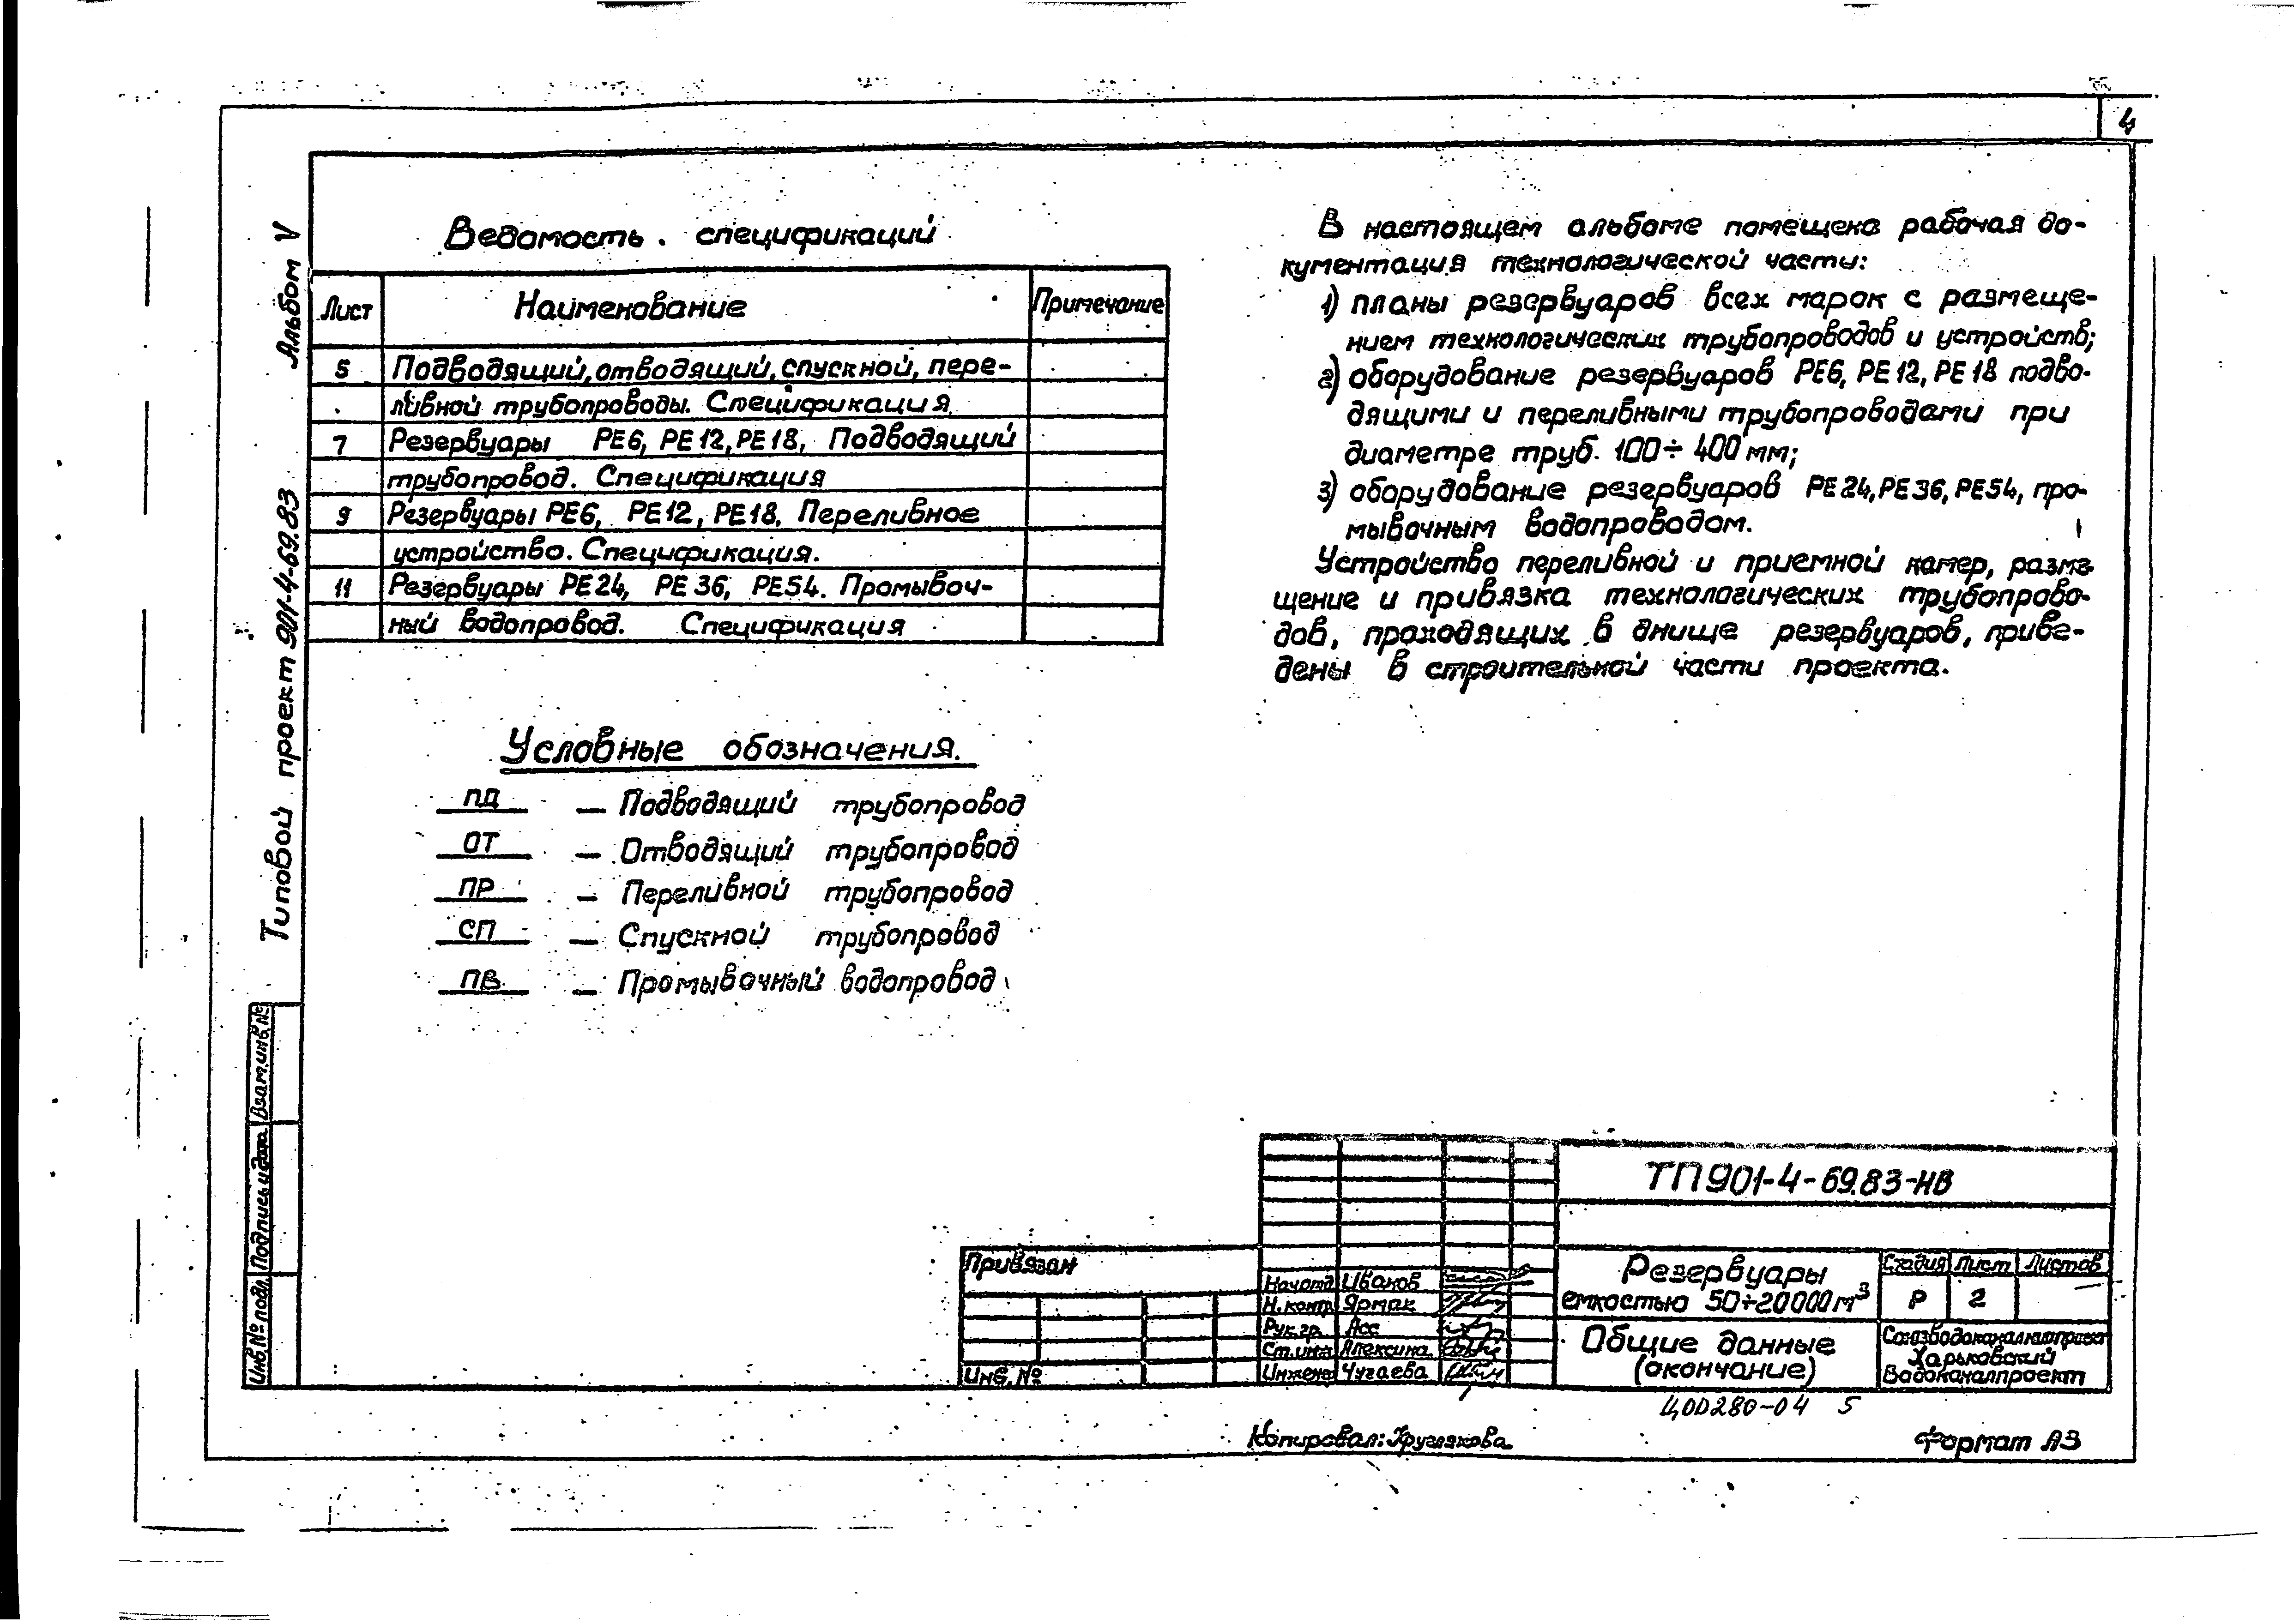 4
Альбом V
Типовой проект 901-4-69.83
Ведомость спецификаций
Лист Наименование Примечание
5 Подводящий, отводящий, спускной, пере-
ливной трубопроводы. Спецификация
7 Резервуары РЕ6, РЕ12, РЕ18, Подводящий
трубопровод. Спецификация
9 Резервуары РЕ6, РЕ12, РЕ18. Переливное
устройство. Спецификация.
11 Резервуары РЕ24, РЕ36, РЕ54. Промывоч-
ный водопровод. Спецификация
Условные обозначения.
ПД — Подводящий трубопровод
ОТ — Отводящий трубопровод
ПР — Переливной трубопровод
СП — Спускной трубопровод
ПВ — Промывочный водопровод
В настоящем альбоме помещена рабочая до-
кументация технологической части:
1) планы резервуаров всех марок с размеще-
нием технологических трубопроводов и устройств;
2) оборудование резервуаров РЕ6, РЕ12, РЕ18 подво-
дящими и переливными трубопроводами при
диаметре труб 100÷400мм;
3) оборудование резервуаров РЕ24, РЕ36, РЕ54, про-
мывочным водопроводом.
Устройство переливной и приемной камер, разме-
щение и привязка технологических трубопрово-
дов, проходящих в днище резервуаров, приве-
дены в строительной части проекта.
Взам.инв.№
Подпись и дата
Инв.№ подл.
Привязан
Инв.№
Нач.отд Иванов
Н.контр Ярмак
Рук.гр. Асс
Ст.инж Алексина
Инжене Чугаева
ТП901-4-69.83-НВ
Резервуары
емкостью 50÷20000м³
Стадия Лист Листов
Р 2
Общие данные
(окончание)
Союзводоканалниипроект
Харьковский
Водоканалпроект
Ц00280-04 5
Копировал: Круглякова
Формат А3